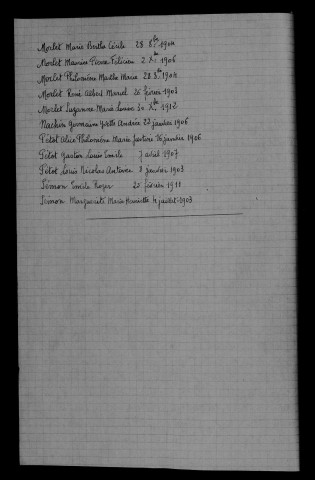 Morlot Marie Bertha Cécile 28 8bre 1904
Morlot Maurice Pierre Félicien 2 Xbre 1906
Morlot Philomène Marthe Marie 28 8bre 1904
Morlot René Albert Marcel 26 février 1903
Morlot Suzanne Marie Louise 30 Xbre 1912
Nachin Germaine Andrée 22 janvier 1906
Pétot Alice Philomène Marie Justine 26 janvier 1906
Pétot Gaston Louis Emile 7 avril 1907
Pétot Louis Nicolas Antoine 8 janvier 1903
Simon Emile Roger 20 février 1911
Simon Marguerite Marie Henriette 4 juillet 1903